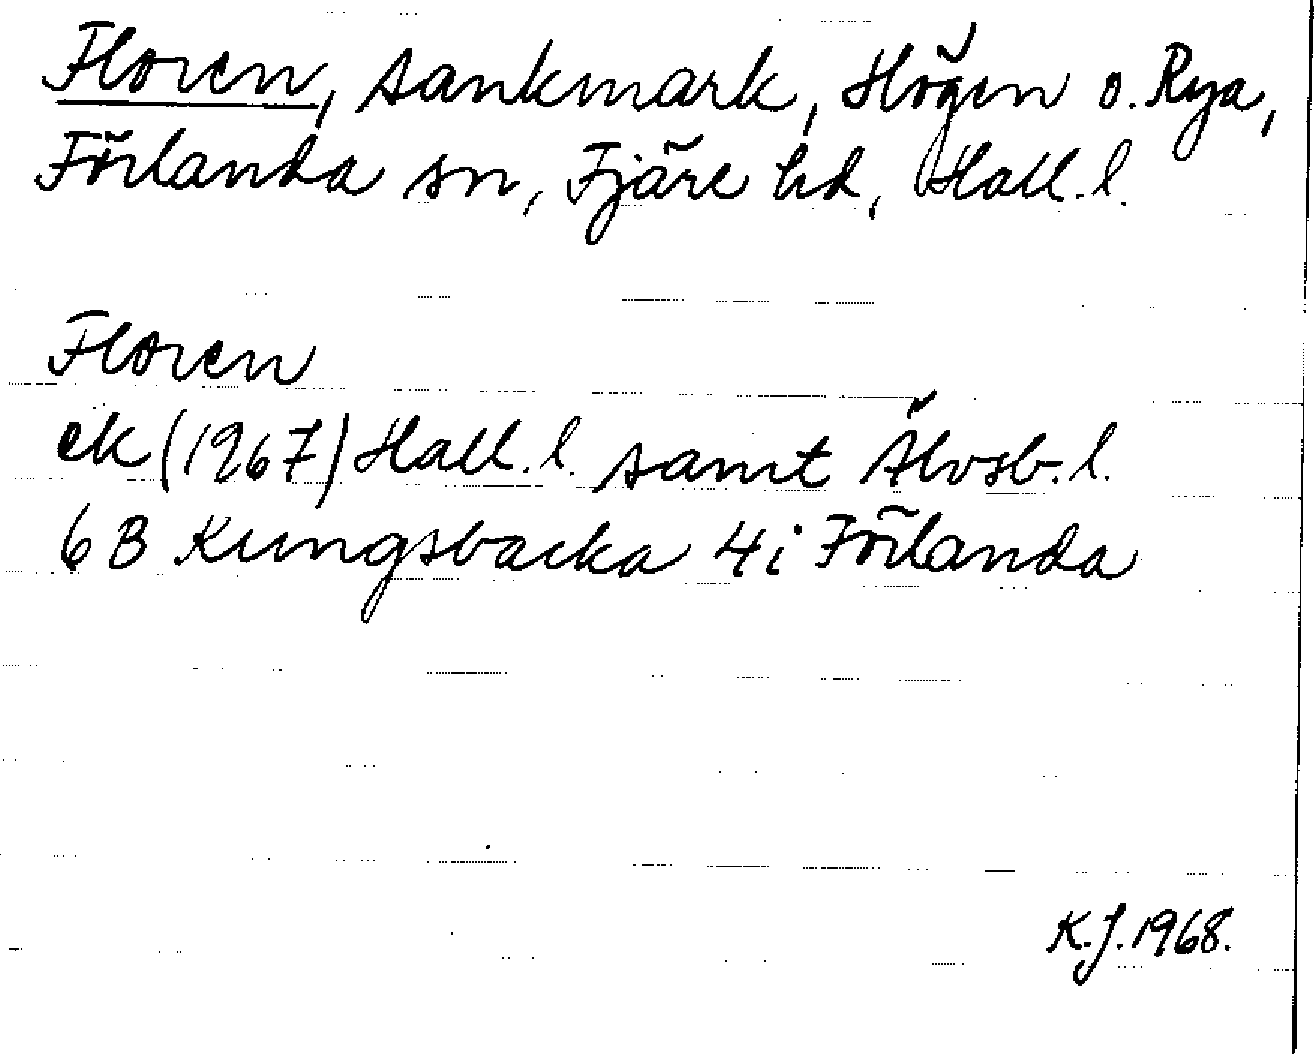 Floren, sankmark, Högen o. Rya,
Förlanda sn, Fjäre hd, Hall.l.
Floren
ek (1967) Hall.l. samt Älvsb.l.
6B Kungsbacka 4i Förlanda
K.J. 1968.